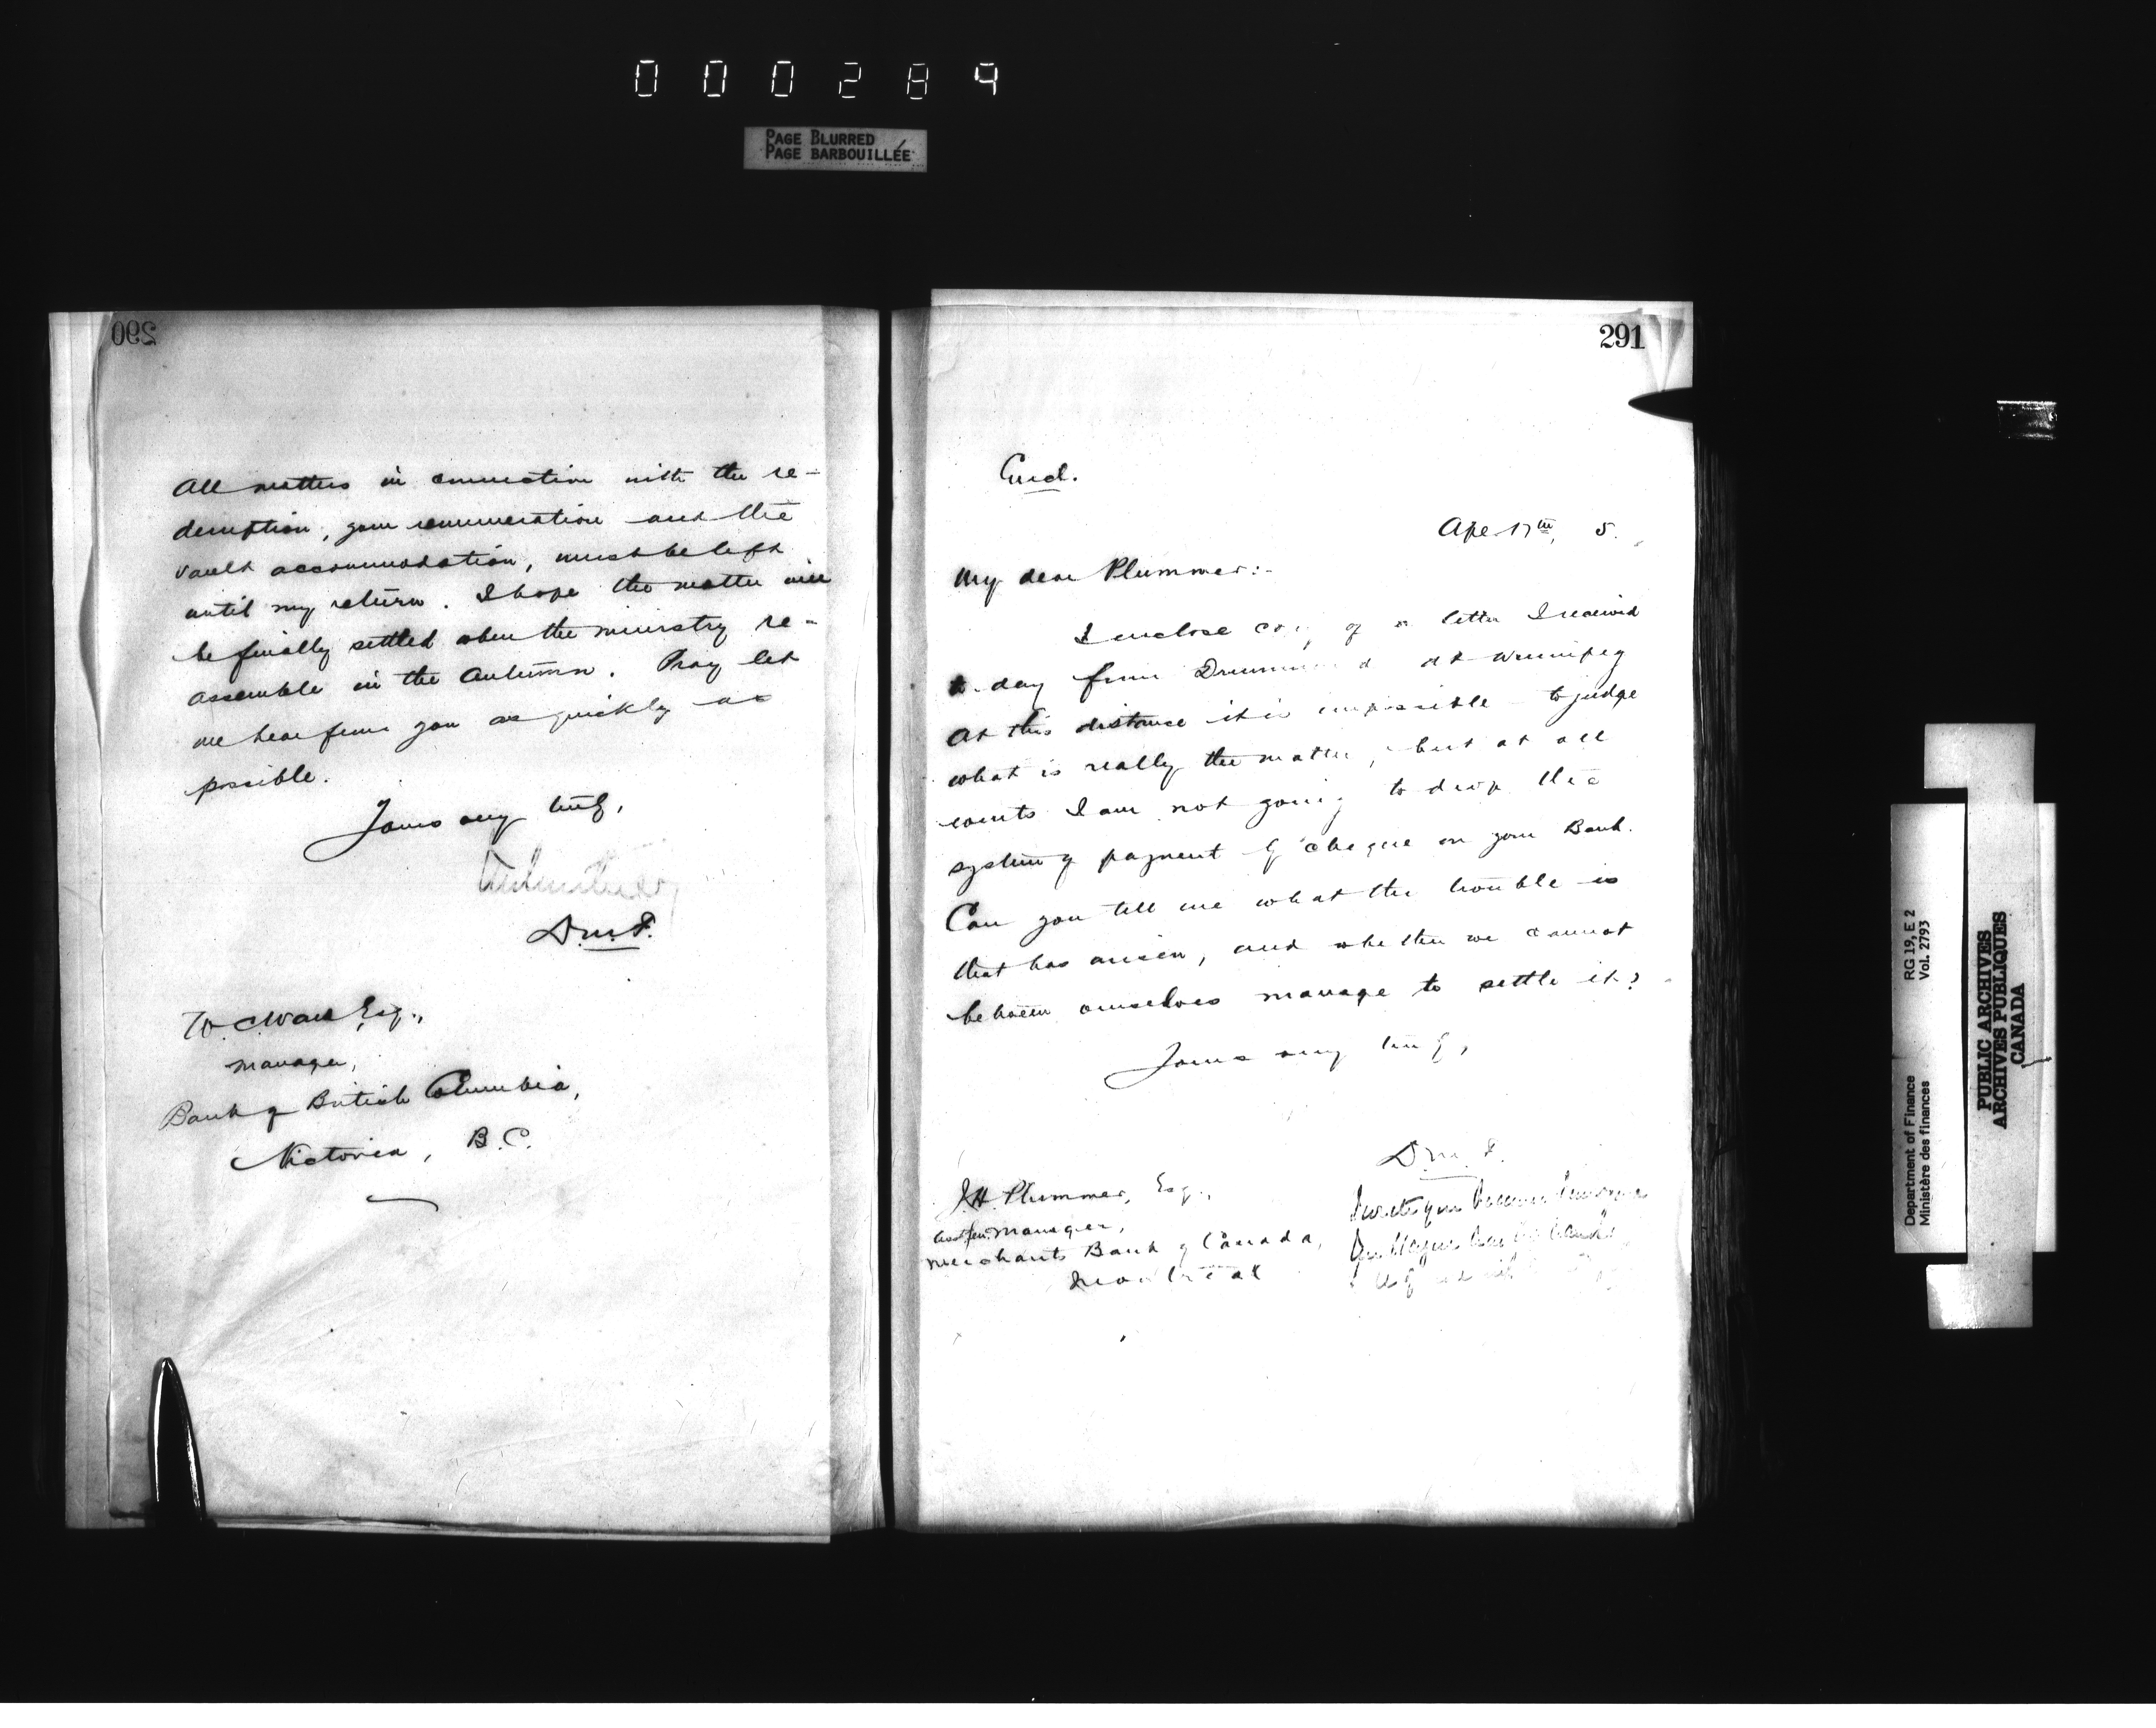 000284
PAGE BLURRED
PAGE BARBOUILLÉE
290
All matters in connection with the re-
demption, your remuneration and the
vault accommodation, must be left
until my return. I hope the matter will
be finally settled when the ministry re-
assemble in the Autumn. Pray let
me hear from you as quickly as
possible.
Yours very truly,
D.M.F.
W. C. Ward Esq.,
Manager,
Bank of British Columbia,
Victoria, B.C.
291
Encl.
Apl 17th, 5.
My dear Plummer:-
I enclose copy of a letter I received
to-day from Drummond at Winnipeg
At this distance it is impossible to judge
what is really the matter, but at all
events I am not going to drop the
system of payment by cheque on your Bank.
Can you tell me what the trouble is
that has arisen, and whether we cannot
between ourselves manage to settle it?
Yours very truly,
D.M.F.
J.H. Plummer, Esq.,
Asst Gen. Manager,
Merchants Bank of Canada,
Montreal
Department of Finance RG 19, E 2
Ministère des finances Vol. 2793
PUBLIC ARCHIVES
ARCHIVES PUBLIQUES
CANADA